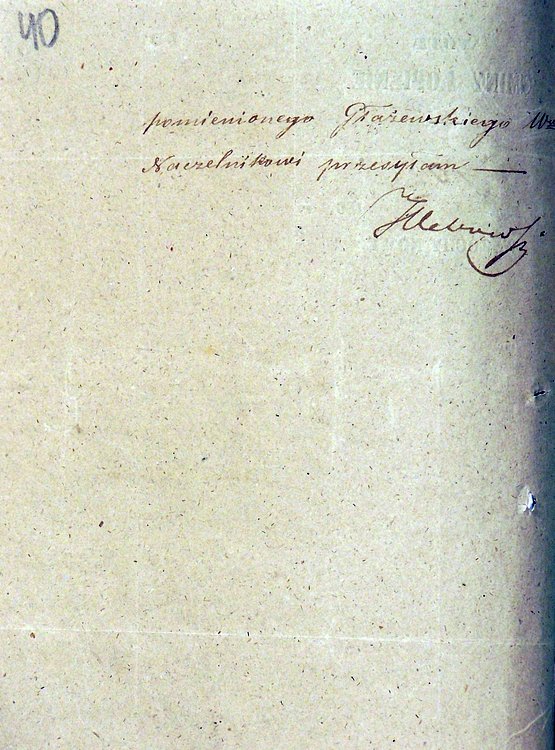 40
pomienionego Głażewskiego
Naczelnikowi przesyłam —